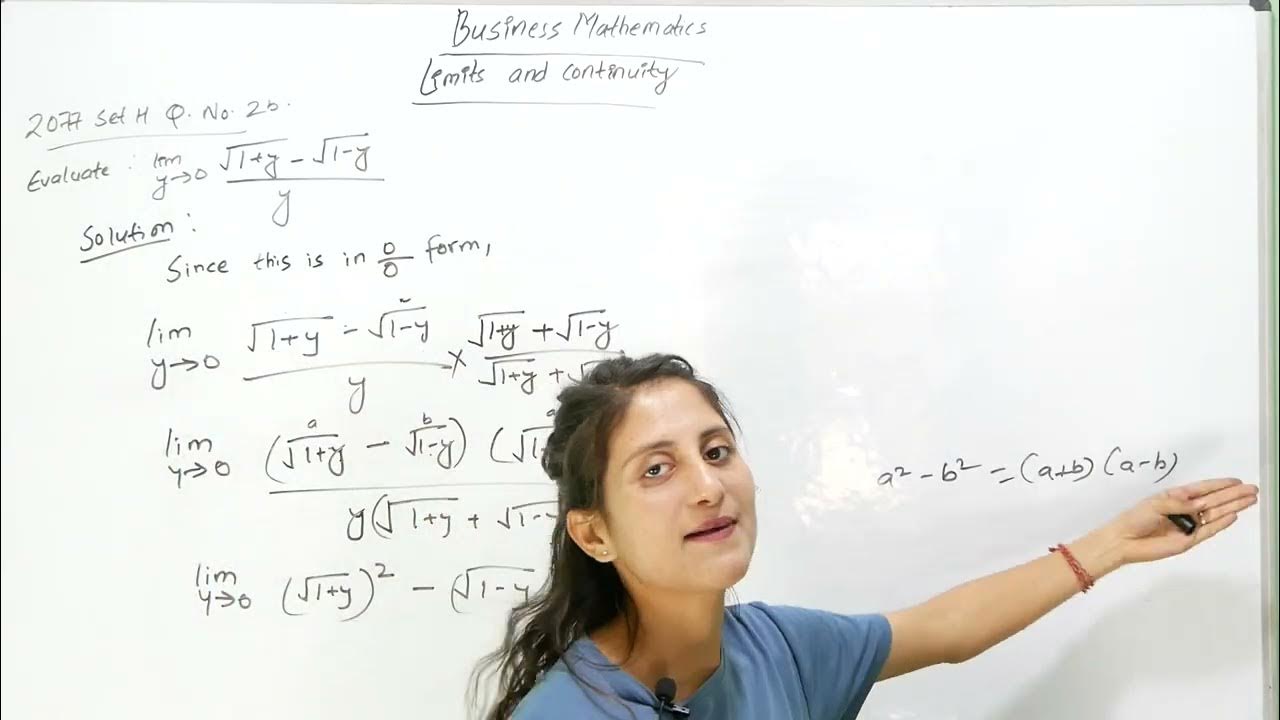 Business Mathematics
Limits and continuity
2077 Set H Q. No. 2b.
Evaluate : lim y→0 (√1+y − √1−y) / y
Solution :
Since this is in 0/0 form,
lim y→0 (√1+y − √1−y) / y × (√1+y + √1−y) / (√1+y + √
a b a
lim y→0 (√1+y − √1−y) (√1
y(√1+y + √1−
lim y→0 (√1+y)² − (√1−y
a² − b² = (a+b) (a−b)